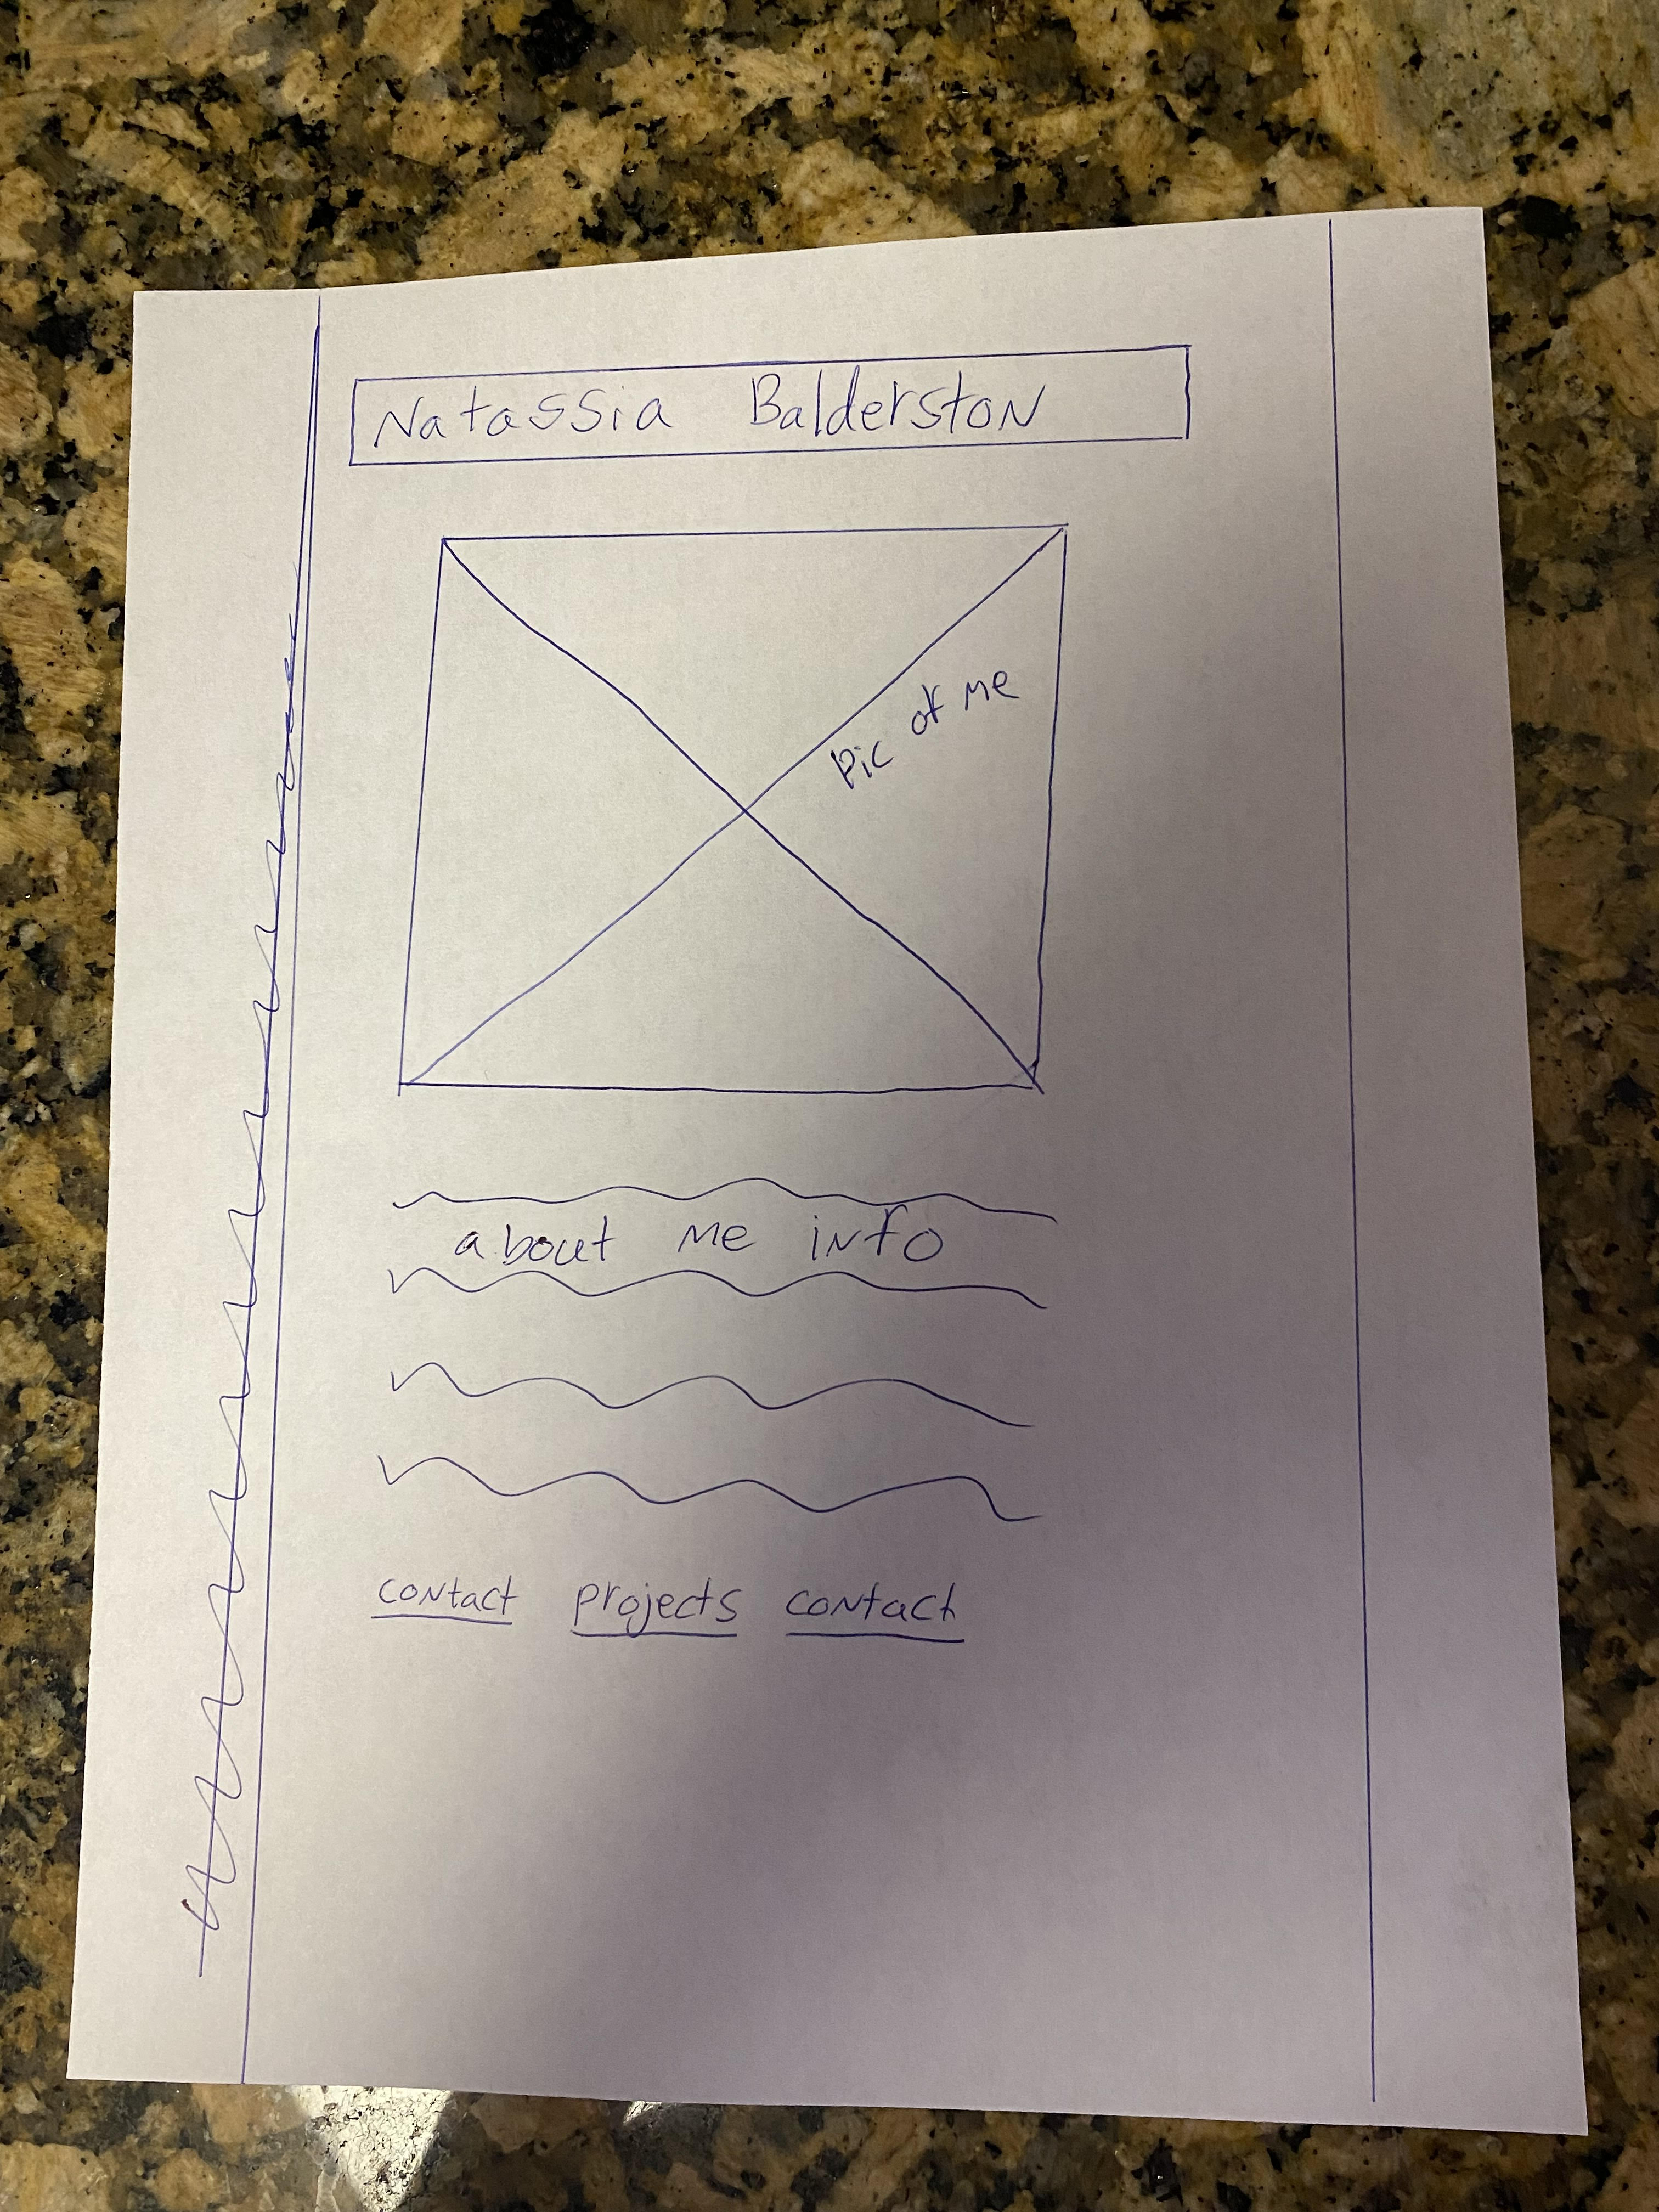 Natassia Balderston
Pic of me
about me info
contact projects contact